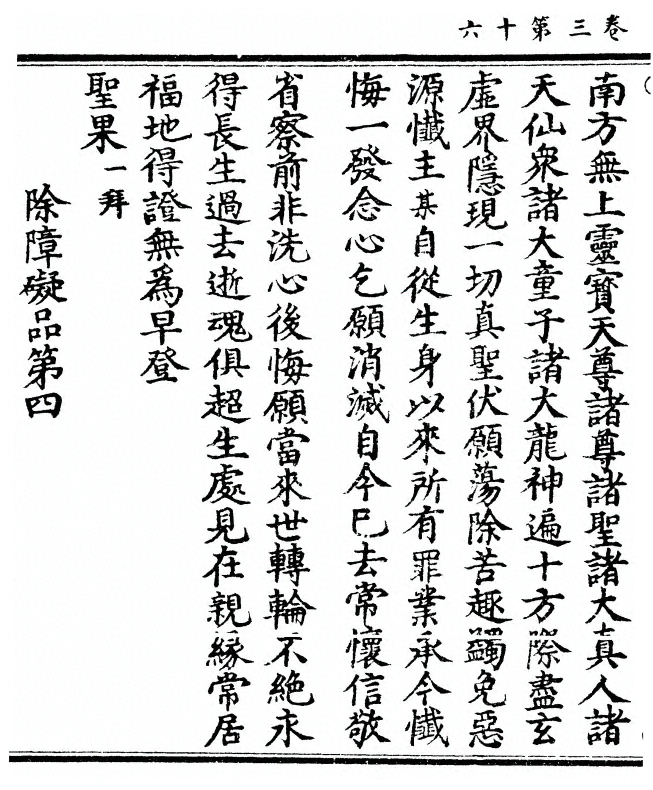 卷三第十六
南方無上靈寳天尊諸尊諸聖諸大真人諸
天仙衆諸大童子諸大龍神遍十方際盡玄
虛界隱現一切真聖伏願蕩除苦趣蠲免惡
源懺主某自從生身以來所有罪業承今懺
悔一發念心乞願消滅自今已去常懷信敬
省察前非洗心後悔願當來世轉輪不絶永
得長生過去逝魂俱超生處見在親緣常居
福地得證無為早登
聖果一拜
除障礙品第四